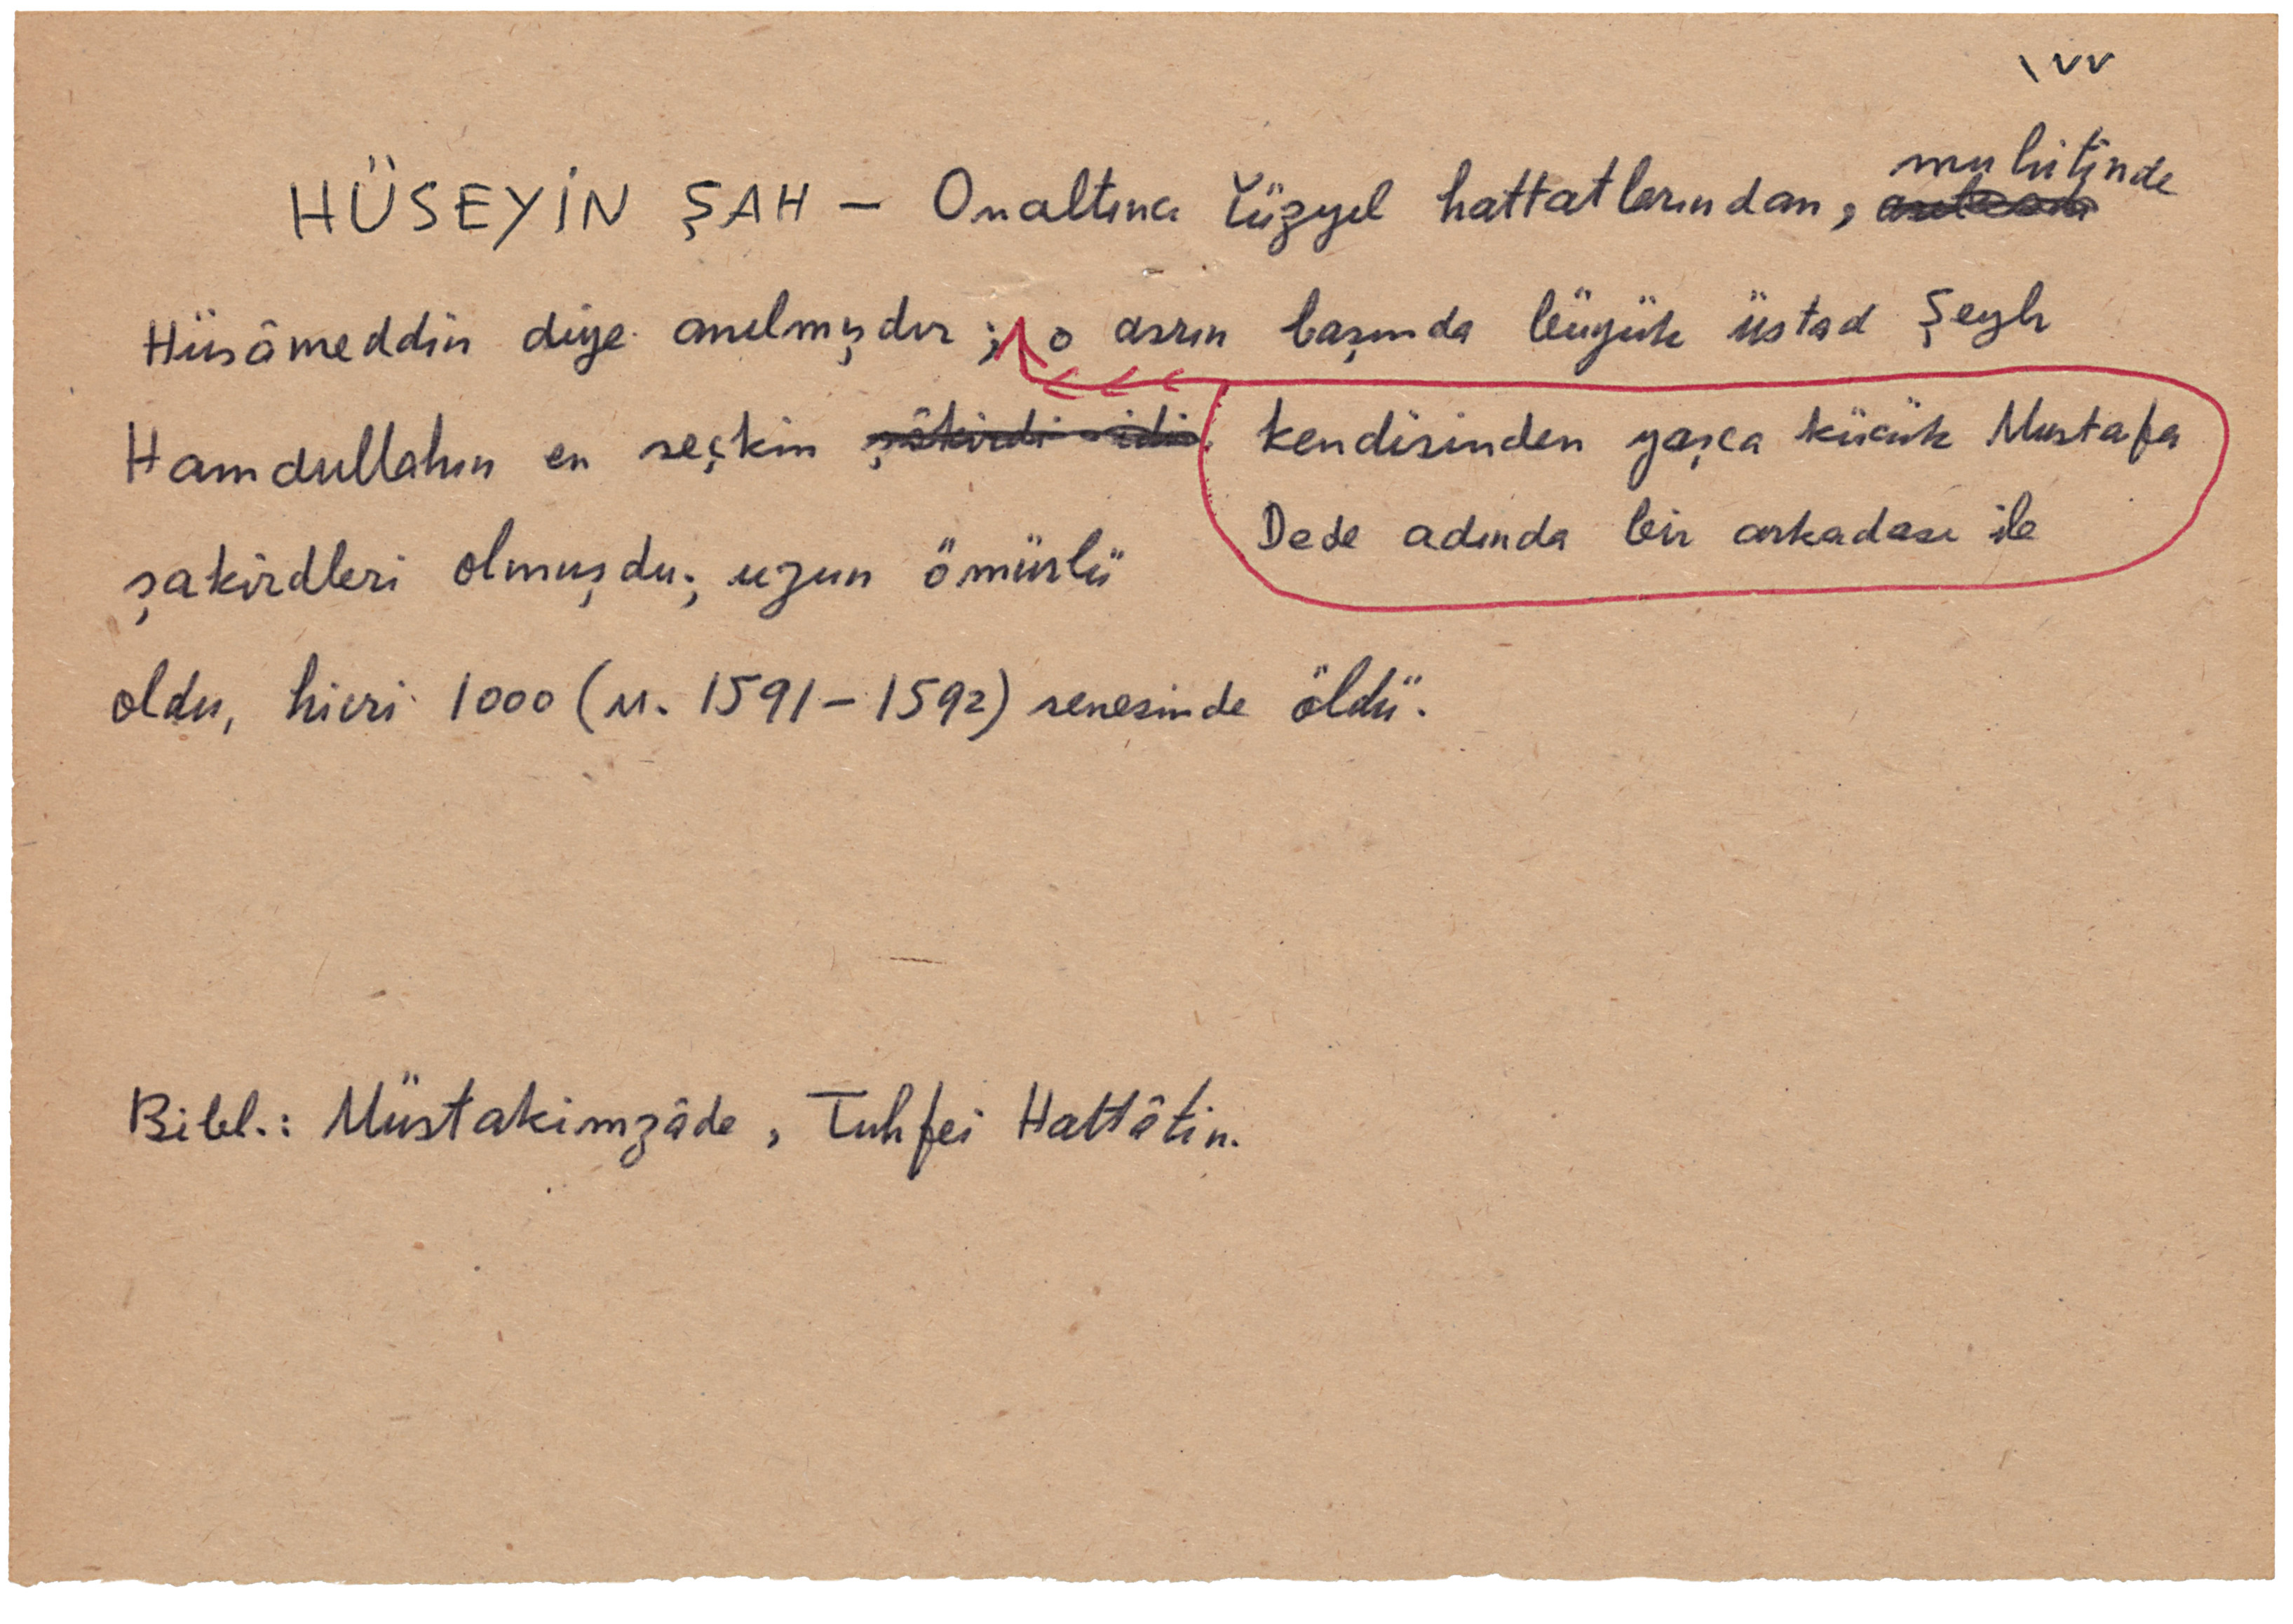 ١٧٧
HÜSEYİN ŞAH — Onaltıncı Yüzyıl hattatlarından, muhitinde
Hüsâmeddin diye anılmışdır; o asrın başında büyük üstad Şeyh
Hamdullahın en seçkin şâkirdi idi kendisinden yaşca küçük Mustafa
Dede adında bir arkadaşı ile
şakirdleri olmuşdu; uzun ömürlü
oldu, hicri 1000 (M. 1591-1592) senesinde öldü.
Bibl.: Müstakimzâde, Tuhfei Hattâtin.